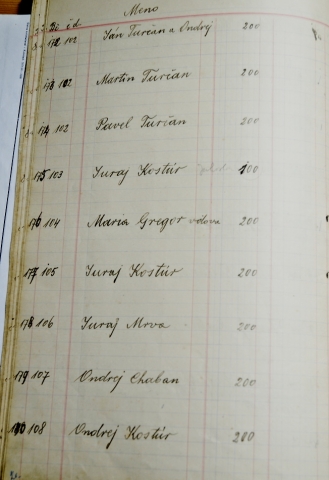 Meno
čd
172 102 Ján Turčan a Ondrej 200
173 102 Martin Turčan 200
174 102 Pavel Turčan 200
175 103 Juraj Kostúr 100
176 104 Maria Gregor vdova 200
177 105 Juraj Kostúr 200
178 106 Juraj Mrva 200
179 107 Ondrej Chaban 200
180 108 Ondrej Kostúr 200